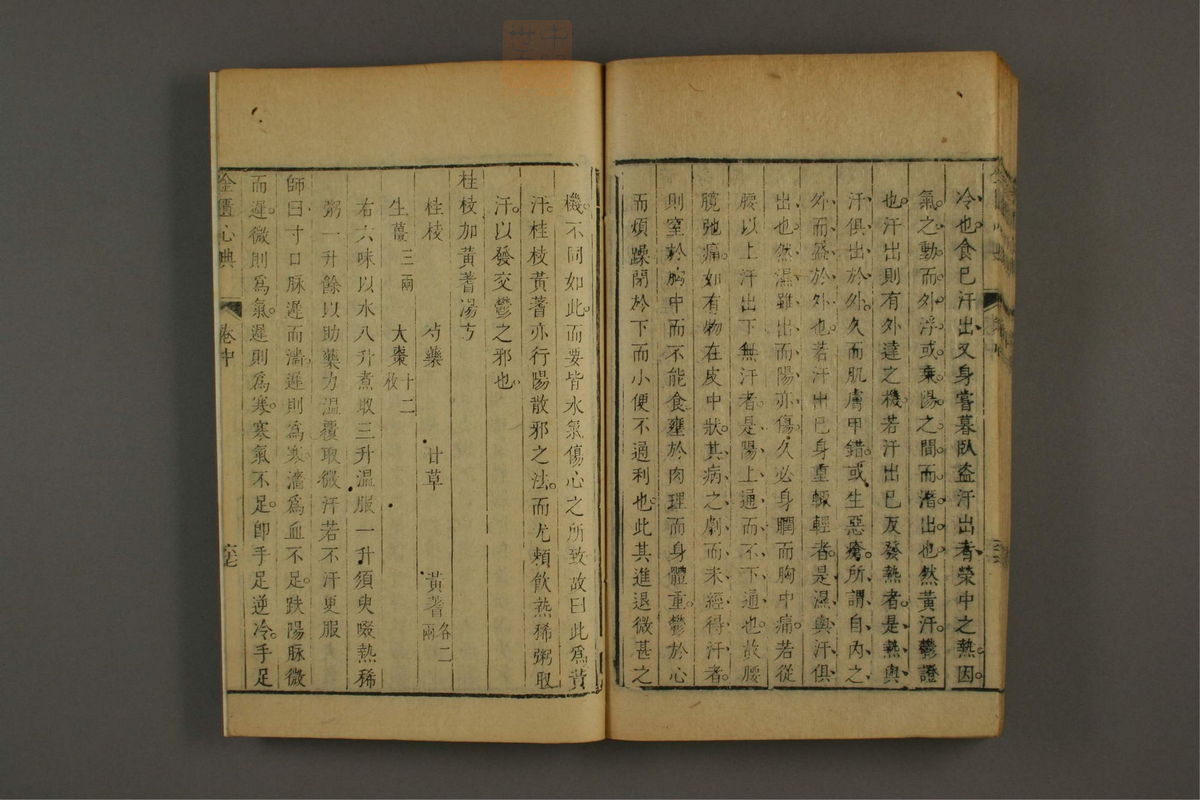 冷也食已汗出又身嘗暮臥盜汗出者榮中之熱因
氣之動而外浮或乘陽之間而潛出也然黃汗鬱證
也汗出則有外達之機若汗出已反發熱者是熱與
汗俱出於外久而肌膚甲錯或生惡瘡所謂自內之
外而盛於外也若汗出已身重輒輕者是濕與汗俱
出也然濕雖出而陽亦傷久必身瞤而胸中痛若從
腰以上汗出下無汗者是陽上通而不下通也故腰
髖弛痛如有物在皮中狀其病之劇而未經得汗者
則窒於胸中而不能食壅於肉理而身體重鬱於心
而煩躁閉於下而小便不通利也此其進退微甚之
機不同如此而要皆水氣傷心之所致故曰此為黃
汗桂枝黃蓍亦行陽散邪之法而尤賴飲熱稀粥取
汗以發交鬱之邪也
桂枝加黃蓍湯方
桂枝 芍藥 甘草 黃蓍各二兩
生薑三兩 大棗十二枚
右六味以水八升煮取三升溫服一升須臾啜熱稀
粥一升餘以助藥力溫覆取微汗若不汗更服
師曰寸口脉遲而濇遲則為寒濇為血不足趺陽脉微
而遲微則為氣遲則為寒寒氣不足卽手足逆冷手足
金匱心典 卷中